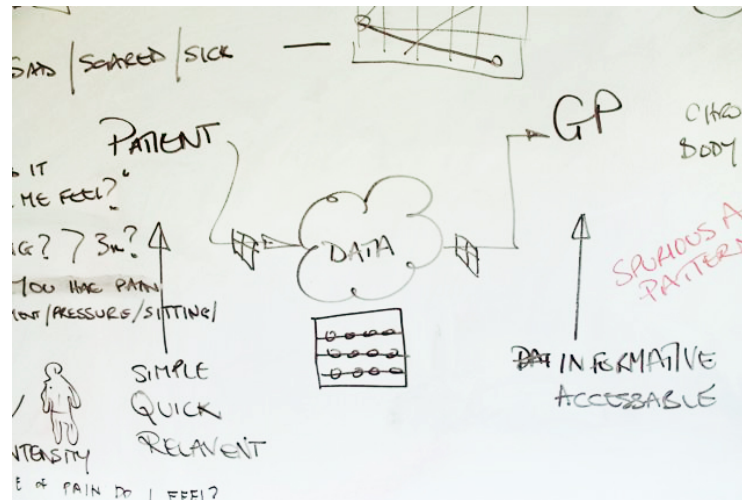 SAD / SCARED / SICK —
PATIENT
GP
BODY
IT
ME FEEL?"
DATA
? > 3m?
YOU HAVE PAIN
/PRESSURE/SITTING/
SPURIOUS A
PATTERN
SIMPLE
QUICK
RELAVENT
INFORMATIVE
ACCESSABLE
NTENSITY
E of PAIN DO I FEEL?